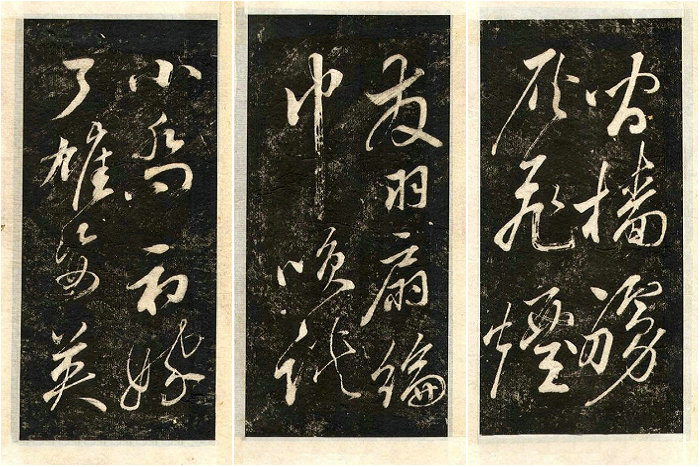 小喬初嫁
了雄姿英
發羽扇綸
巾笑談
間檣艣
灰飛煙